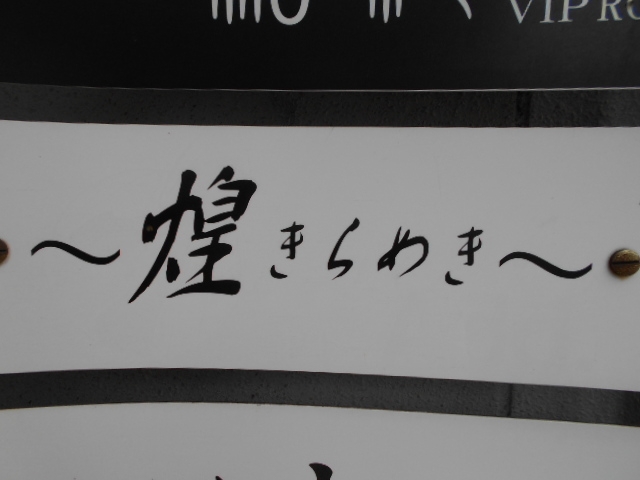 VIP
～煌きらめき～